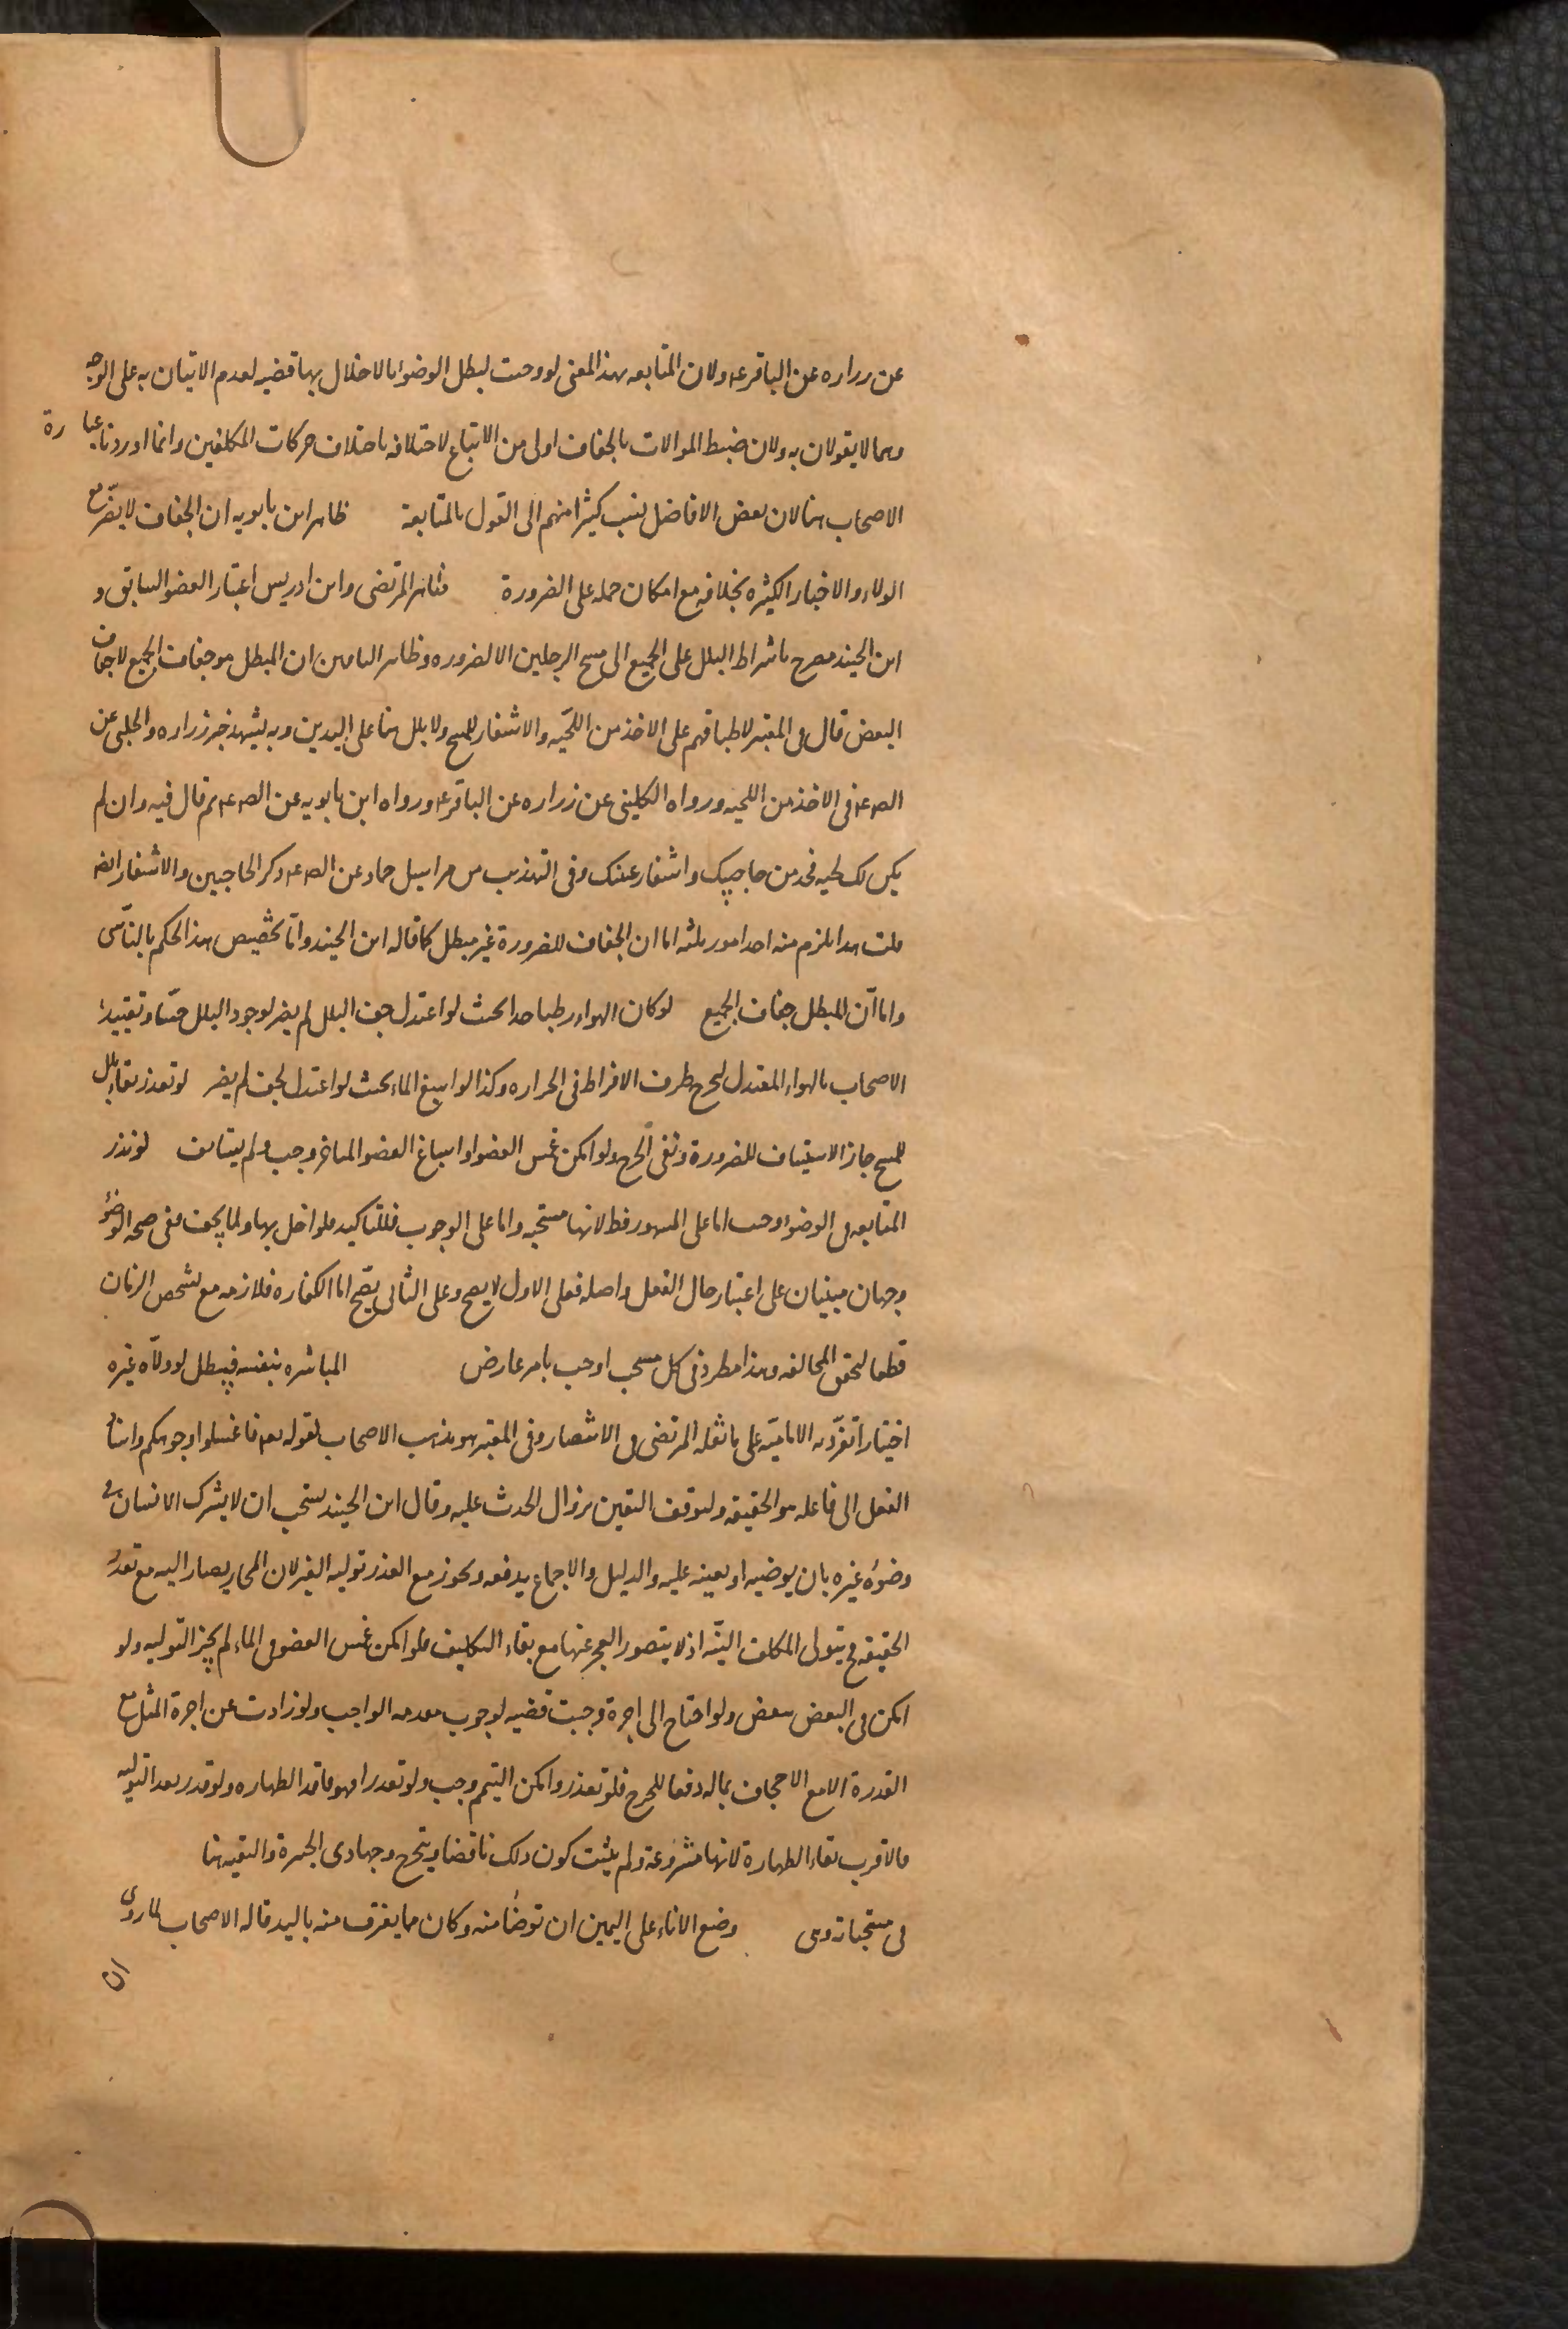 عن زراره عن الباقر ع ولان المتابعه بهذا المعنى لو وجبت لبطل الوضوء بالاخلال بها قضيه لعدم الاتيان به على الوجه
وهما لا يقولان به ولان ضبط الموالات بالجفاف اولى من الاتباع لاختلافه باختلاف حركات المكلفين وانما اوردنا عبارة
الاصحاب هنا لان بعض الافاضل نسب كثيرا منهم الى القول بالمتابعة ظاهر ابن بابويه ان الجفاف لا يضر مع
الولاء والاخبار الكثيره بخلافه مع امكان حمله على الضرورة فظاهر المرتضى وابن ادريس اعتبار العضو السابق و
ابن الجنيد مصرح باشراط البلل على الجميع الى مسح الرجلين الا لضروره وظاهر الباقين ان المبطل هو جفاف الجميع لا جفاف
البعض قال فى المعتبر لاطباقهم على الاخذ من اللحيه والاشفار للمسح ولا بلل هنا على اليدين وبه يشهد خبر زراره والحلبى عن
الص ع فى الاخذ من اللحيه ورواه الكلينى عن زراره عن الباقر ع ورواه ابن بابويه عن الص ع ثم قال فيه وان لم
يكن لك لحيه فخذ من حاجبيك واشفار عينك وفى التهذيب من مراسيل حماد عن الص ع ذكر الحاجبين والاشفار ايضا
قلت هذا يلزم منه احد امور ثلثه اما ان الجفاف للضرورة غير مبطل كما قاله ابن الجنيد واما تخصيص هذا الحكم بالناسى
واما ان المبطل جفاف الجميع لو كان الهواء رطبا جدا بحيث لو اعتدل جف البلل لم يضر لوجود البلل حسا وتقييد
الاصحاب بالهواء المعتدل ليخرج طرف الافراط فى الحراره وكذا لو اسبغ الماء بحيث لو اعتدل لجف لم يضر لو تعذر بقاء بلل
للمسح جاز الاستيناف للضرورة ونفى الحرج ولو امكن غمس العضو او اسباغ العضو المتاخر وجب ولم يستانف لو نذر
المتابعه فى الوضوء وجب اما على المشهور فظ لانها مستحبه واما على الوجوب فللتاكيد فلو اخل بها ولما يجف ففى صحه الوضوء
وجهان مبنيان على اعتبار حال الفعل واصله فعلى الاول لا يصح وعلى الثانى يصح اما الكفاره فلازمه مع تشخص الزمان
قطعا لتحقق المخالفه وهذا مطرد فى كل مستحب اوجب بامر عارض المباشره بنفسه فيبطل لو ولاه غيره
اختيارا تفرد به الاماميه على ما نقله المرتضى فى الانتصار وفى المعتبر هو مذهب الاصحاب لقوله تعه فاغسلوا وجوهكم واسناد
الفعل الى فاعله هو الحقيقه ولتوقف اليقين بزوال الحدث عليه وقال ابن الجنيد يستحب ان لا يشرك الانسان فى
وضوئه غيره بان يوضيه او يعينه عليه والدليل والاجماع يدفعه ويجوز مع العذر توليه الغير لان المجاز يصار اليه مع تعذر
الحقيقه ح يتولى المكلف النيه اذ لا يتصور العجز عنها مع بقاء التكليف فلو امكن غمس العضو فى الماء لم يجز التوليه ولو
امكن فى البعض تبعض ولو احتاج الى اجرة وجبت قضيه لوجوب مقدمه الواجب ولو زادت عن اجرة المثل مع
القدرة الا مع الاجحاف بماله دفعا للحرج فلو تعذر وامكن التيمم وجب ولو تعذرا فهو فاقد الطهاره ولو قدر بعد التوليه
فالاقرب بقاء الطهارة لانها مشروعة ولم يثبت كون ذلك ناقضا ويتخرج وجها ذى الجبيرة والتقيه هنا
فى مستحباته وهى وضع الاناء على اليمين ان توضا منه وكان مما يغترف منه باليد قاله الاصحاب لما روى
ان